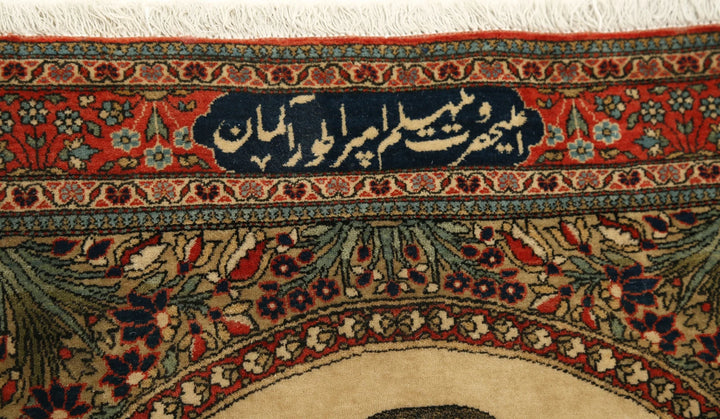 اعلیحضرت ویلهیلم امپراطور آلمان